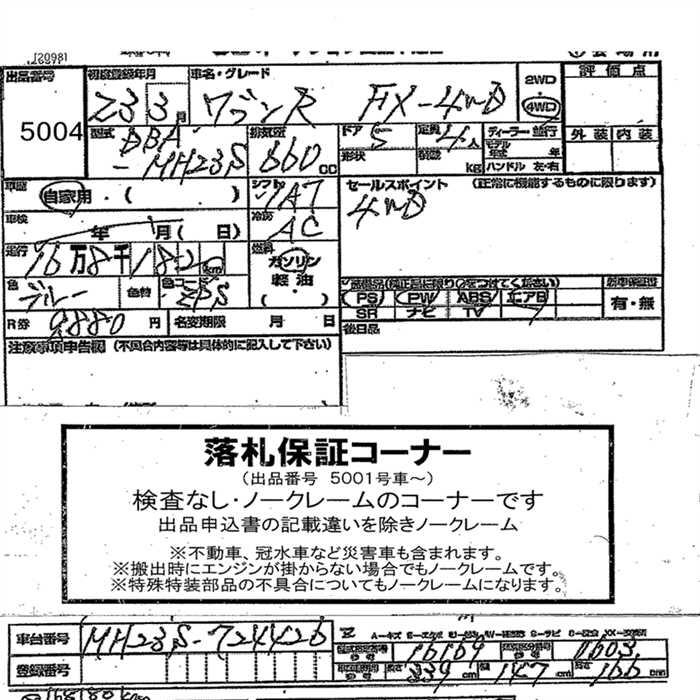 出品番号 初度登録年月 車名・グレード 2WD 評価点
5004 23 3月 ワゴンR FX-4WD 4WD
型式 DBA-MH23S 排気量 660 cc ドア 5 定員 4人 ディーラー・並行 外装 内装
形状 積載 kg モデル年式 年
ハンドル 左・右
車歴 自家用・( ) シフト IAT セールスポイント (正常に機能するものに限ります)
4WD
車検 年 月( 日) 冷房 AC
走行 16万8千182 km 燃料 ガソリン
軽油
・( )
色 ブルー 色替 色コード ZPS
装備品(純正品に限り○をつけてください) 新車保証書
PS PW ABS エアB 有・無
SR ナビ TV
R券 9880円 名変期限 月 日 後日品
注意事項申告欄 (不具合内容等は具体的に記入して下さい)
落札保証コーナー
(出品番号 5001号車~)
検査なし・ノークレームのコーナーです
出品申込書の記載違いを除きノークレーム
※不動車、冠水車など災害車も含まれます。
※搬出時にエンジンが掛からない場合でもノークレームです。
※特殊特装部品の不具合についてもノークレームになります。
車台番号 MH23S-724426
型式指定番号 16169 類別区分番号 1603
登録番号 長さ 339 cm 幅 147 cm 高さ 166 cm
168180km